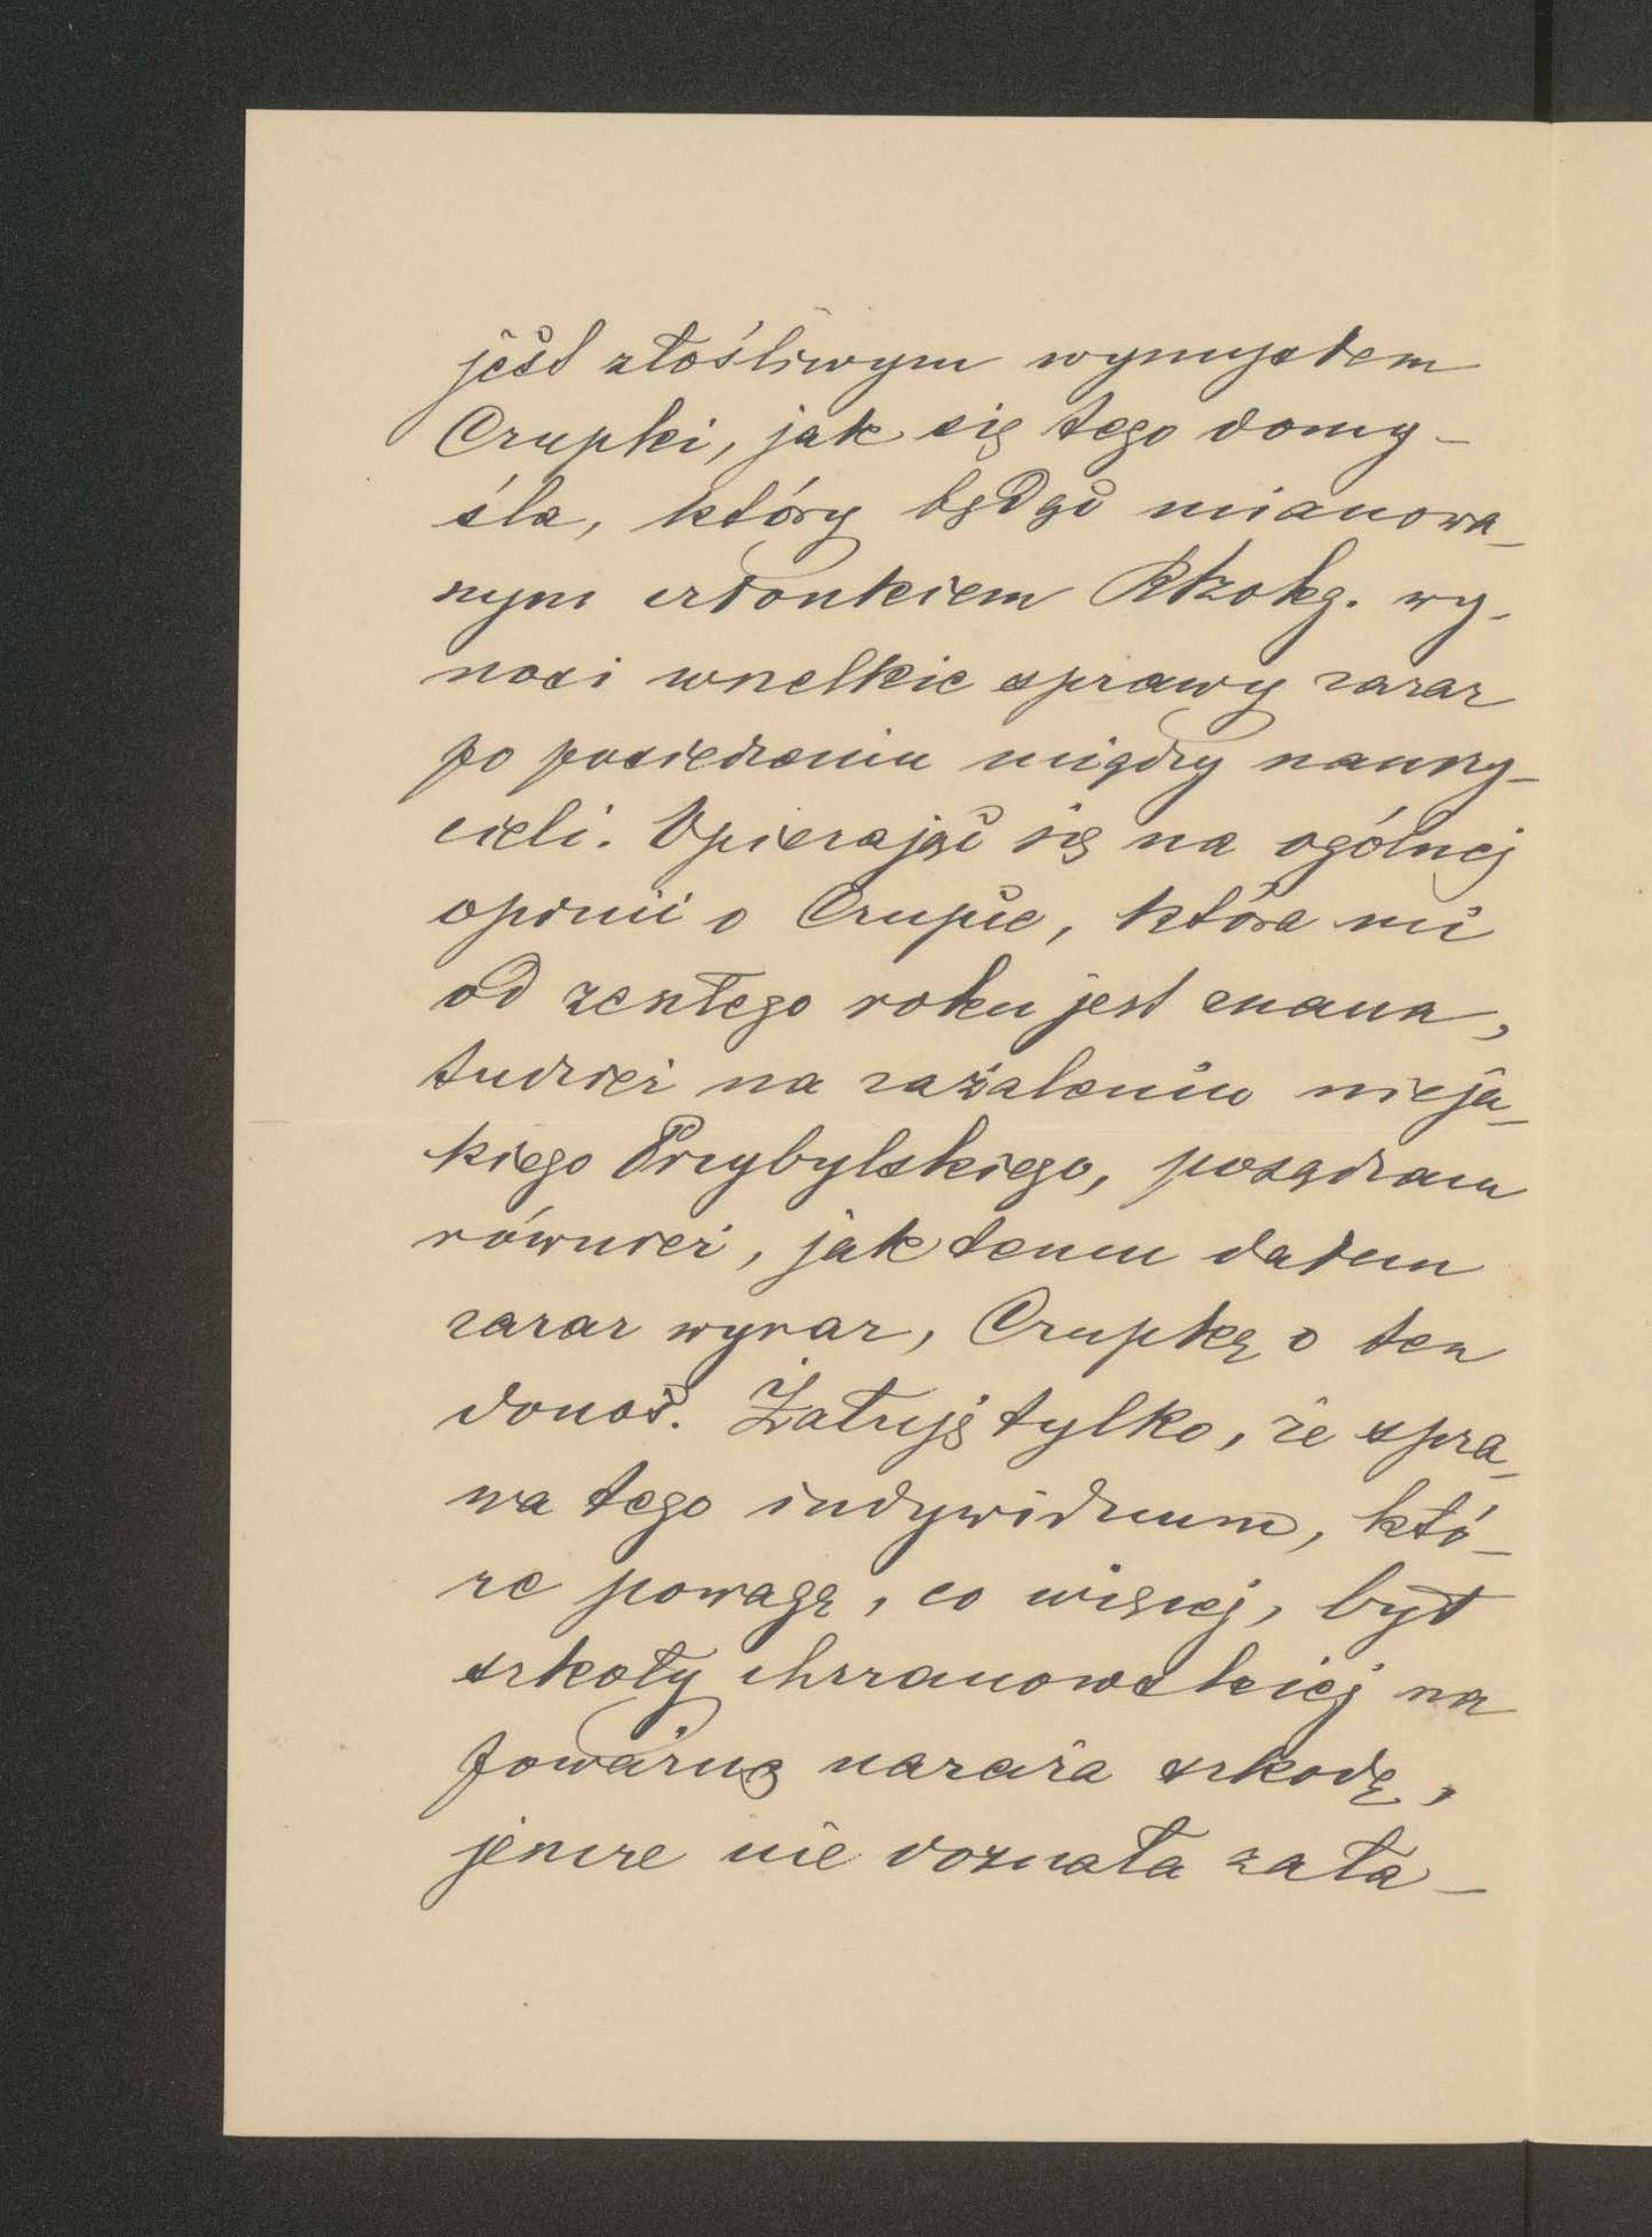 jest złośliwym wymysłem
Czupki, jak się tego domy-
śla, który będąc mianowa-
nym członkiem Rszokg. wy-
nosi wszelkie sprawy zaraz
po posiedzeniu między nauczy-
cieli. Opierając się na ogólnej
opinii o Czupce, która mi
od zeszłego roku jest znana,
tudzież na zażaleniu nieja-
kiego Przybylskiego, posądzam
również, jak temu dałem
zaraz wyraz, Czupkę o ten
donos. Żałuję tylko, że spra-
wa tego indywiduum, któ-
re powagę, co więcej, byt
szkoły chrzanowskiej na
poważną naraża szkodę,
jeszcze nie doznała zała-